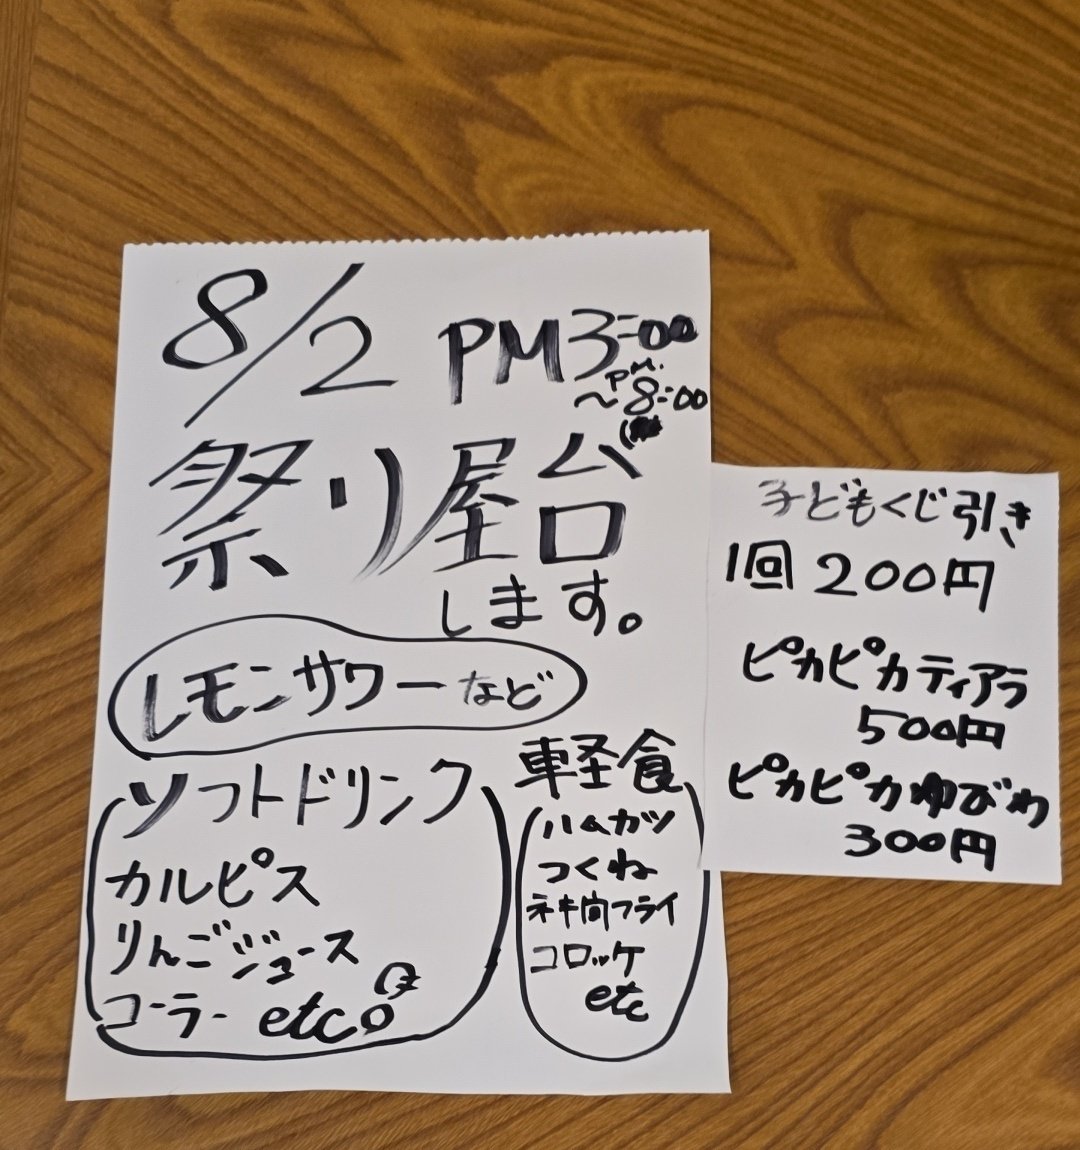 8/2 PM3:00
～PM.8:00
祭り屋台
します。
レモンサワーなど
ソフトドリンク
カルピス
りんごジュース
コーラー etc
軽食
ハムカツ
つくね
ネギ間フライ
コロッケ
etc
子どもくじ引き
1回 200円
ピカピカティアラ
500円
ピカピカゆびわ
300円